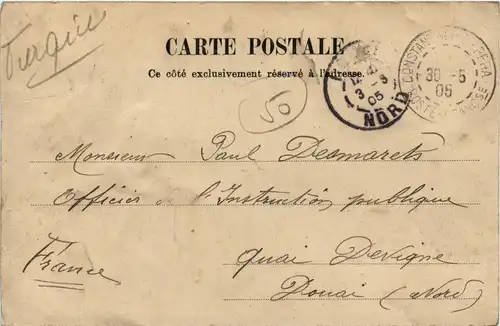 Turquie
CARTE POSTALE
Ce côté exclusivement réservé à l'adresse.
3 -5
05
NORD
CONSTANTINOPLE PERA
30 -5
05
POSTE FRANÇAISE
50
Monsieur Paul Desmarets
Officier de l'Instruction publique
Quai Devigne
France
Douai (Nord)